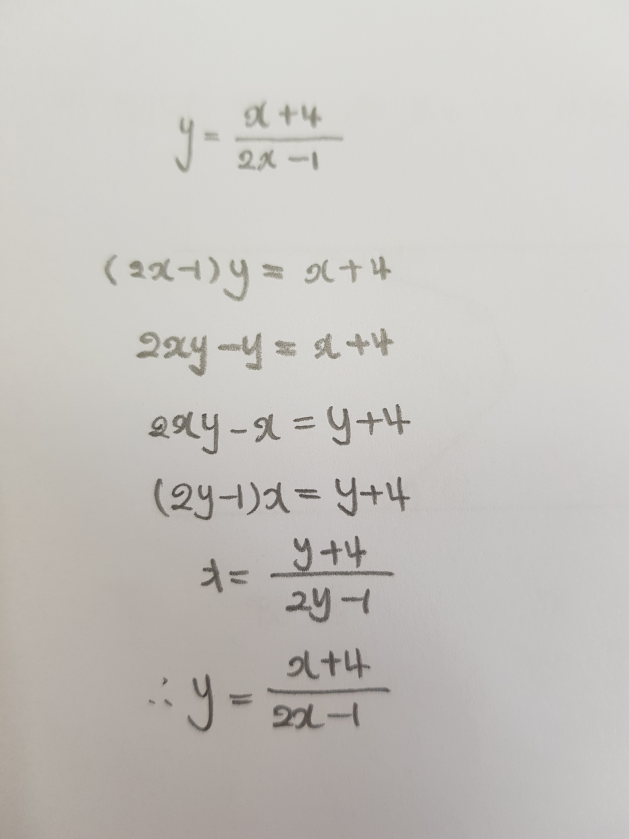 y = (x+4)/(2x-1)
(2x-1)y = x+4
2xy-y = x+4
2xy-x = y+4
(2y-1)x = y+4
x = (y+4)/(2y-1)
∴ y = (x+4)/(2x-1)